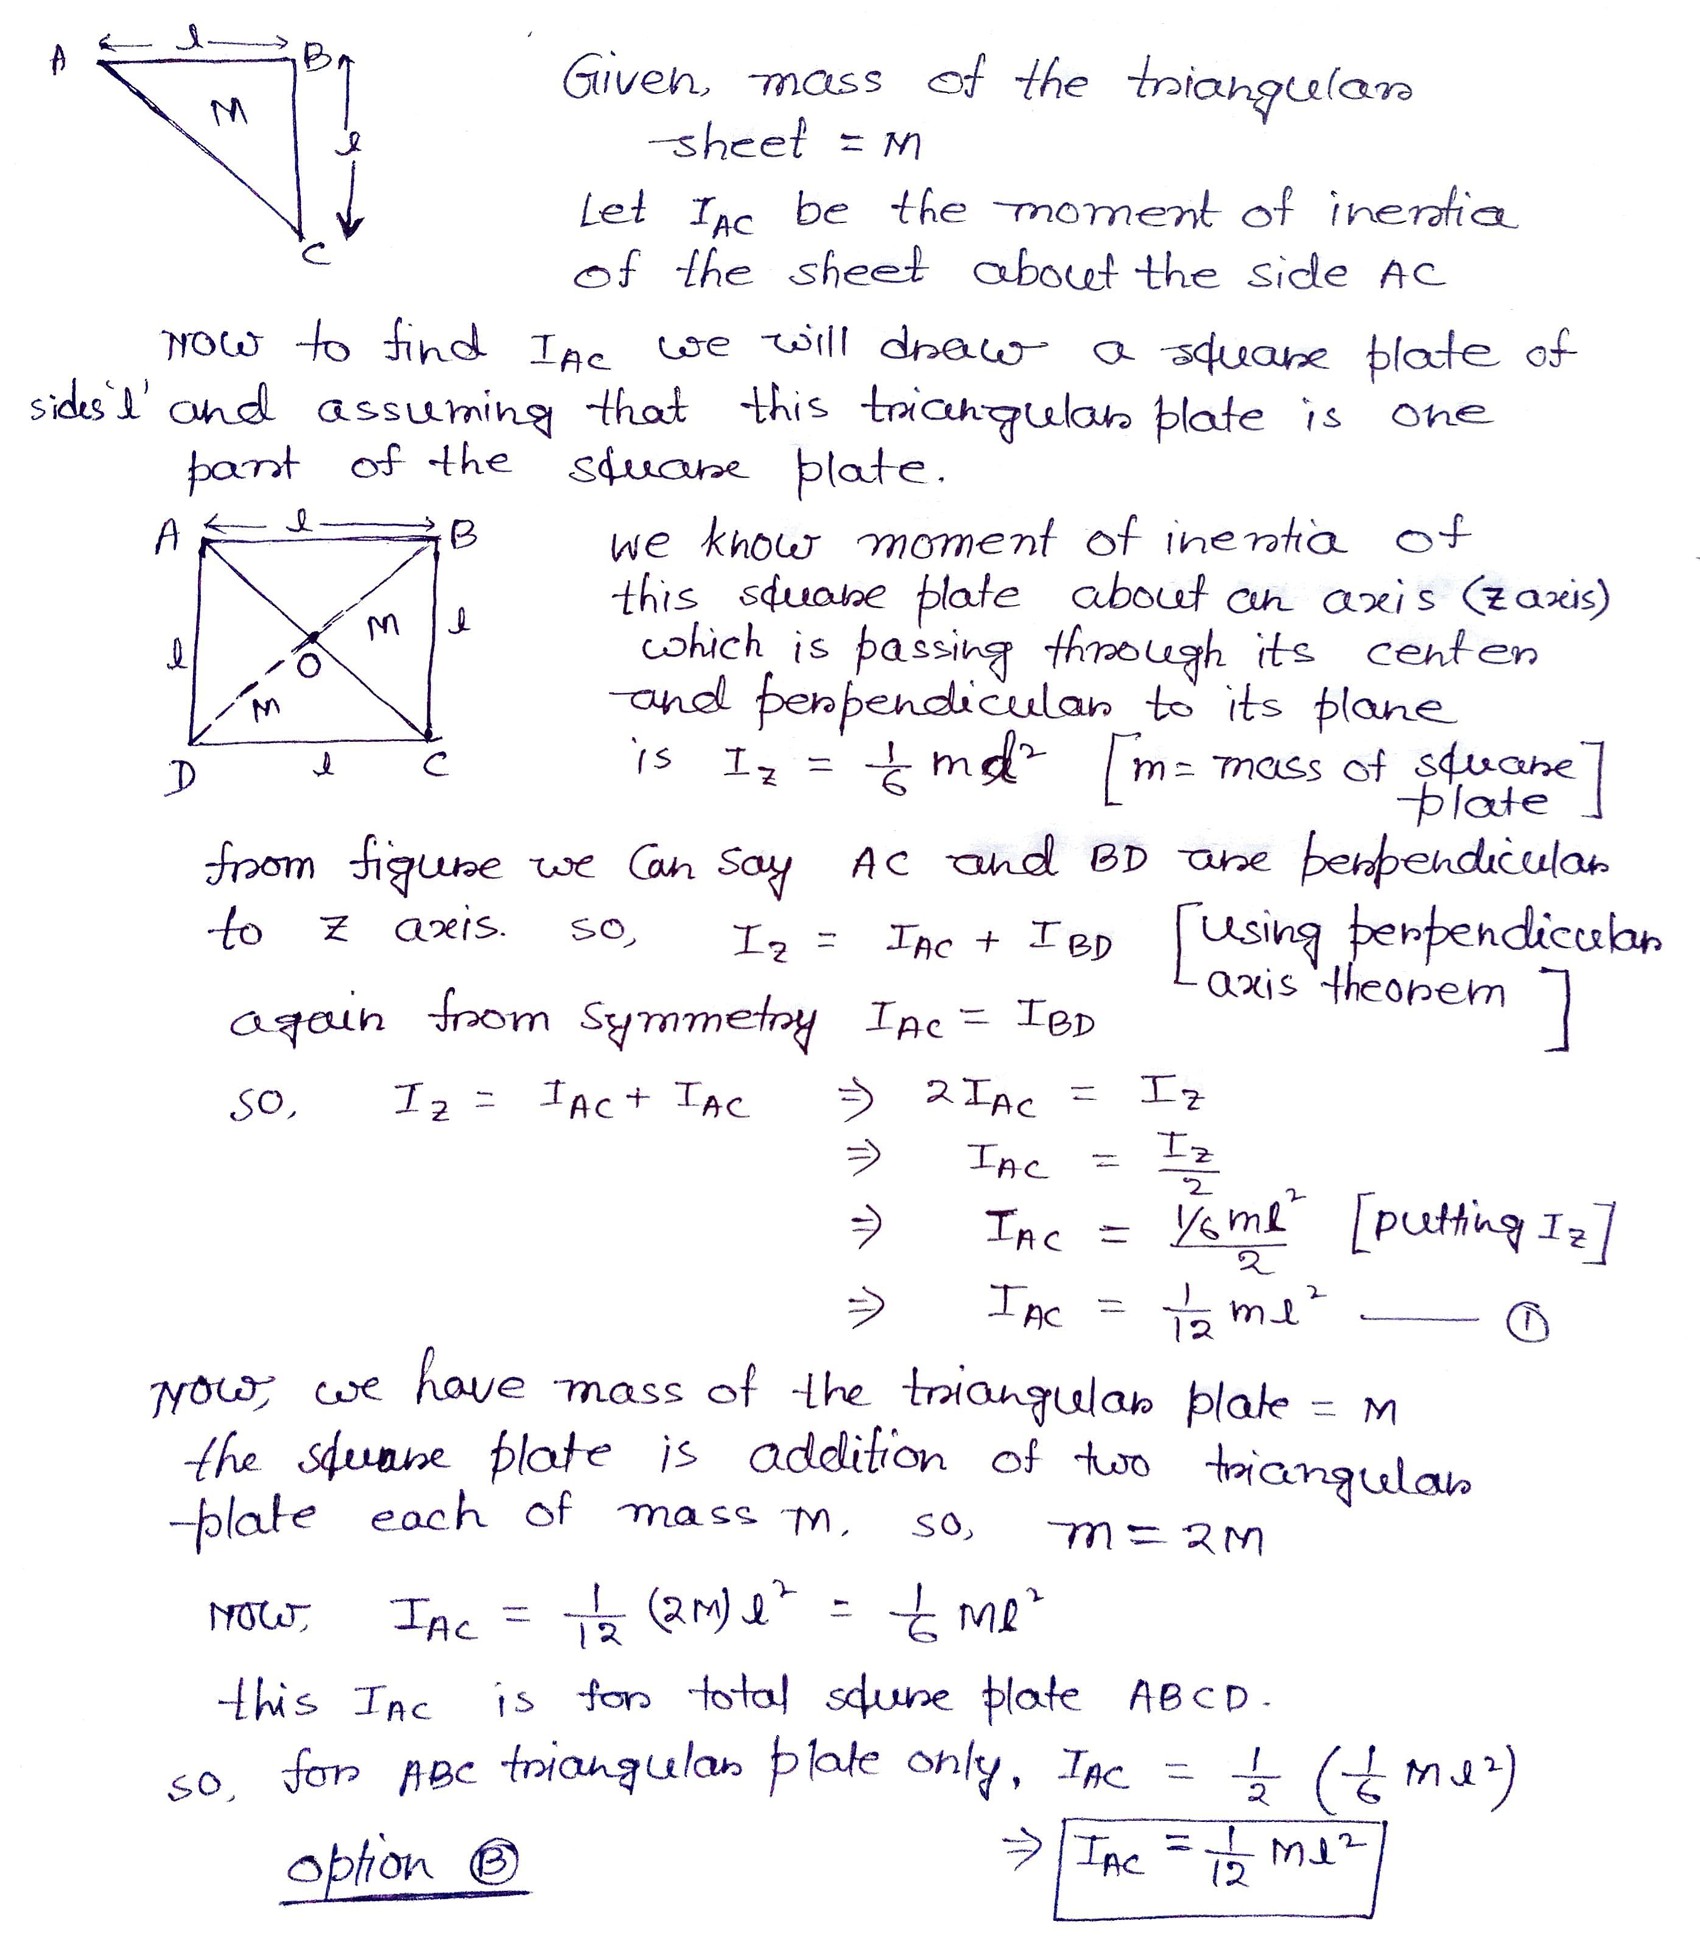 A l B
M
l
C
Given, mass of the triangular
sheet = M
Let I_AC be the moment of inertia
of the sheet about the side AC
Now to find I_AC we will draw a square plate of
sides 'l' and assuming that this triangular plate is one
part of the square plate.
A l B
M
l
l
O
M
D l C
we know moment of inertia of
this square plate about an axis (z axis)
which is passing through its center
and perpendicular to its plane
is I_z = 1/6 ml² [m = mass of square
plate]
from figure we can say AC and BD are perpendicular
to z axis. so, I_z = I_AC + I_BD [using perpendicular
axis theorem]
again from symmetry I_AC = I_BD
so, I_z = I_AC + I_AC ⇒ 2I_AC = I_z
⇒ I_AC = I_z/2
⇒ I_AC = (1/6 ml²)/2 [putting I_z]
⇒ I_AC = 1/12 ml² —— ①
Now, we have mass of the triangular plate = M
the square plate is addition of two triangular
plate each of mass M. so, m = 2M
Now, I_AC = 1/12 (2M) l² = 1/6 Ml²
this I_AC is for total squre plate ABCD.
so, for ABC triangular plate only, I_AC = 1/2 (1/6 Ml²)
⇒ I_AC = 1/12 Ml²
option Ⓑ